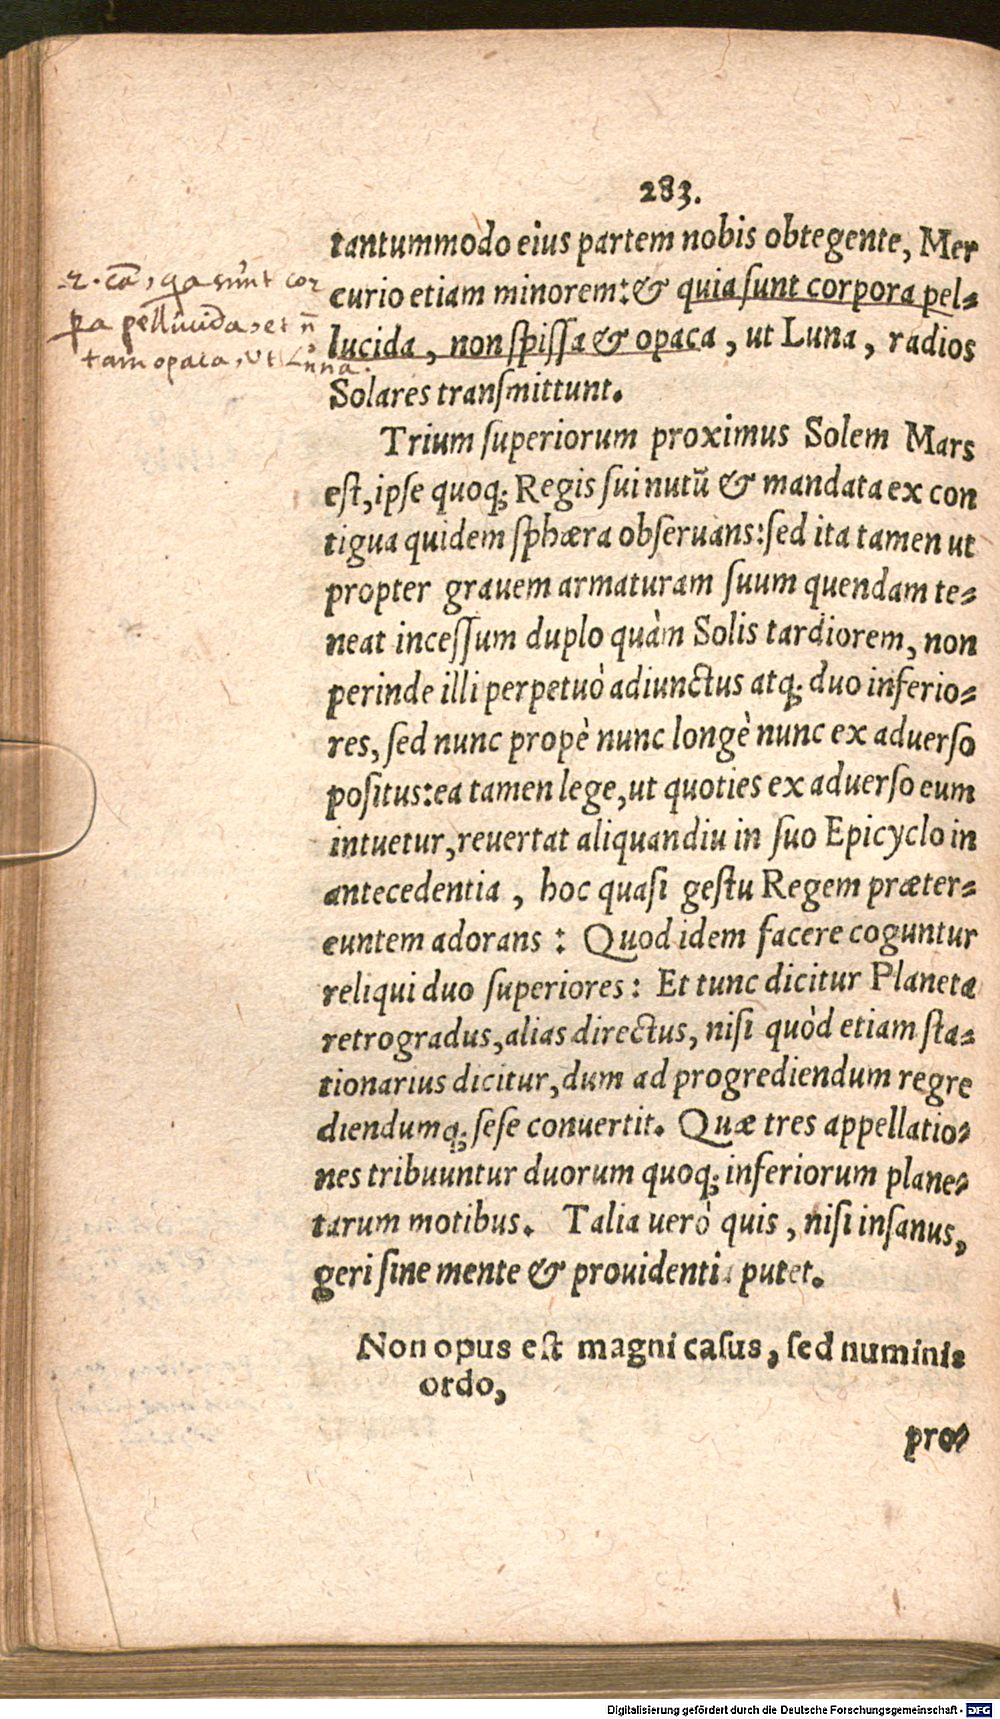 283.
tantummodo eius partem nobis obtegente, Mer
curio etiam minorem: & quia sunt corpora pel⸗
lucida, non spissa & opaca, ut Luna, radios
Solares transmittunt.
Trium superiorum proximus Solem Mars
est, ipse quoq; Regis sui nutū & mandata ex con
tigua quidem sphæra obseruans: sed ita tamen ut
propter grauem armaturam suum quendam te⸗
neat incessum duplo quàm Solis tardiorem, non
perinde illi perpetuò adiunctus atq; duo inferio⸗
res, sed nunc propè nunc longè nunc ex aduerso
positus: ea tamen lege, ut quoties ex aduerso eum
intuetur, reuertat aliquandiu in suo Epicyclo in
antecedentia, hoc quasi gestu Regem præter⸗
euntem adorans: Quod idem facere coguntur
reliqui duo superiores: Et tunc dicitur Planeta
retrogradus, alias directus, nisi quòd etiam sta⸗
tionarius dicitur, dum ad progrediendum regre
diendumq; sese conuertit. Quæ tres appellatio⸗
nes tribuuntur duorum quoq; inferiorum plane⸗
tarum motibus. Talia uerò quis, nisi insanus,
geri sine mente & prouidentia putet.
Non opus est magni casus, sed numinis
ordo,
pro⸗
2. cā, qa sunt cor
pa pellucida, et n̄
tam opaca, ut Luna.
Digitalisierung gefördert durch die Deutsche Forschungsgemeinschaft - DFG